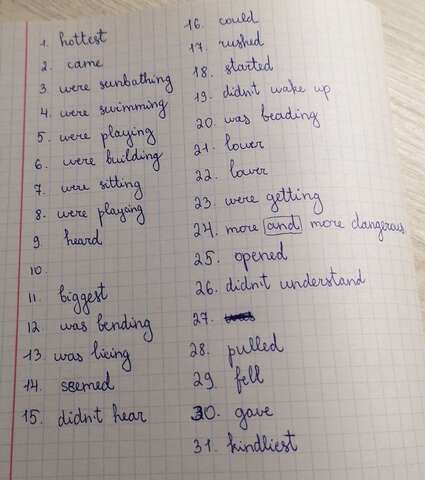 1. hottest
2. came
3 were sunbathing
4. were swimming
5. were playing
6. were building
7. were sitting
8. were playing
9. heard
10.
11. biggest
12 was bending
13. was lieing
14. seemed
15. didn't hear
16. could
17. rushed
18. started
19. didn't wake up
20. was beading
21. lower
22. lower
23. were getting
24. more and more dangerous
25. opened
26. didn't understand
27.
28. pulled
29. fell
30. gave
31. kindliest